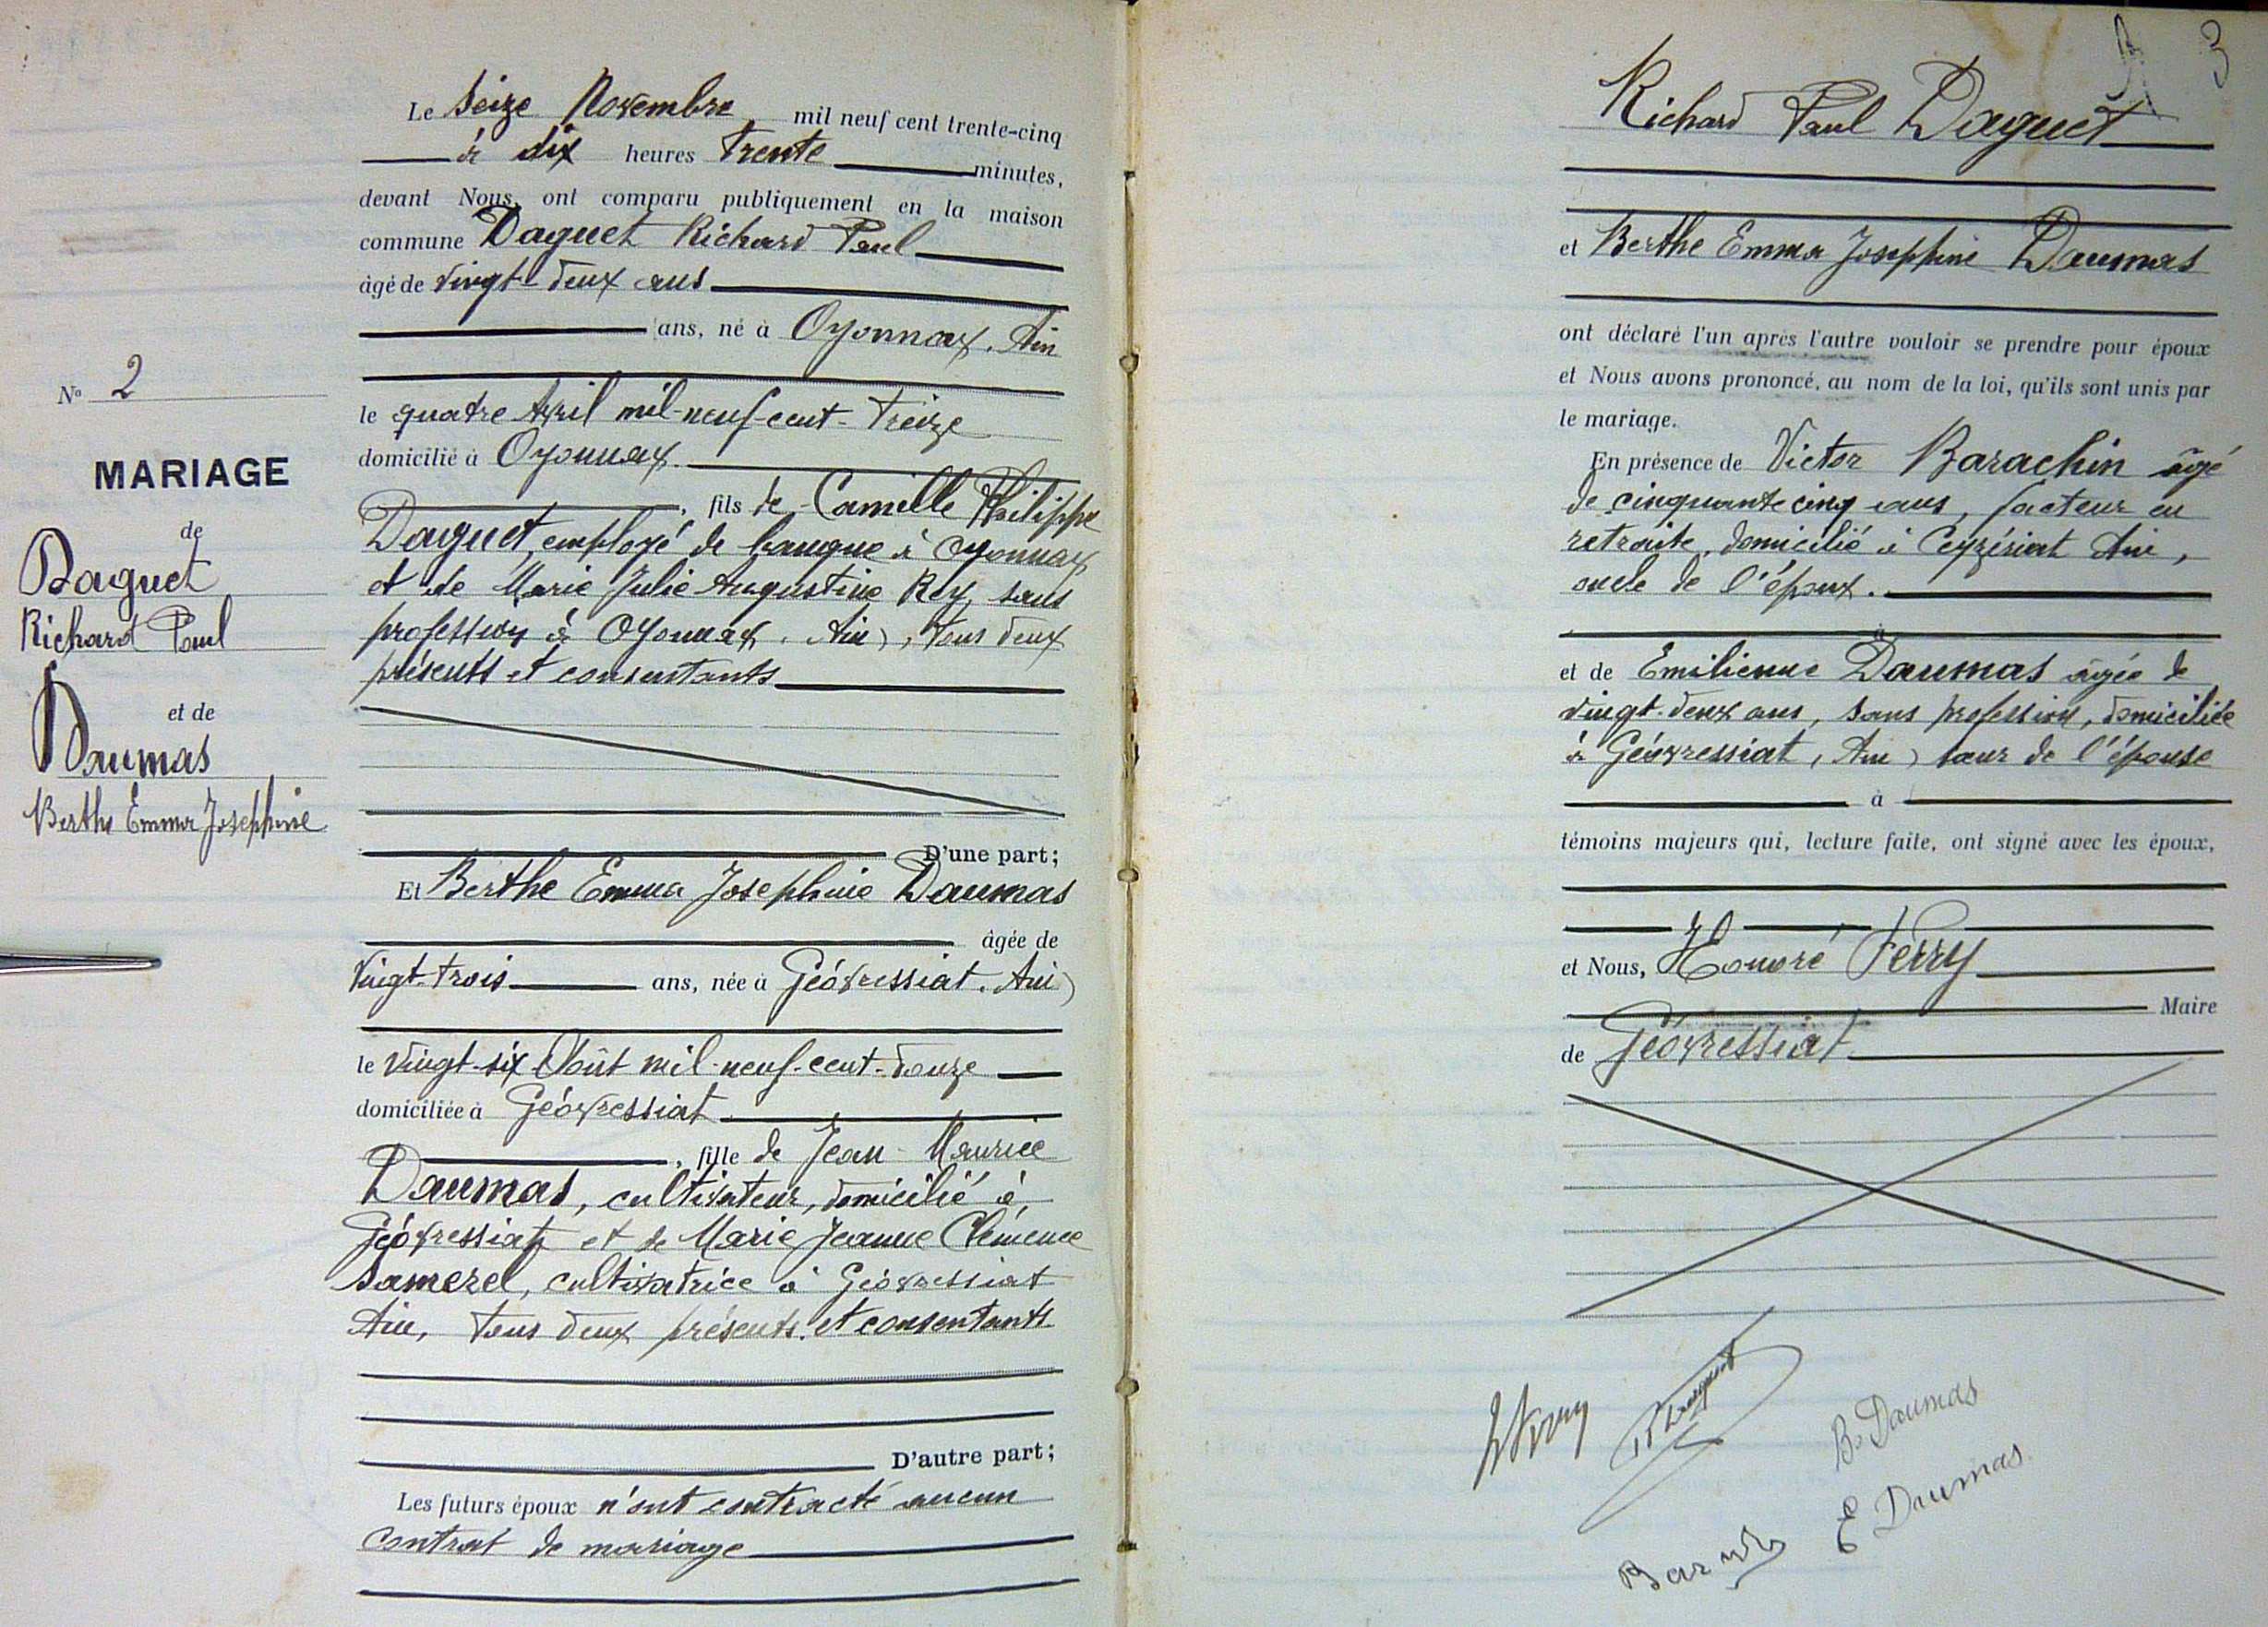 Le Seize Novembre mil neuf cent trente-cinq
à dix heures trente minutes,
devant Nous, ont comparu publiquement en la maison
commune Daguet Richard Paul
âgé de vingt-deux ans
ans, né à Oyonnax, Ain
le quatre Avril mil-neuf-cent-treize
domicilié à Oyonnax.
, fils de Camille Philippe
Daguet, employé de banque à Oyonnax
et de Marie Julie Augustine Rey, sans
profession à Oyonnax, Ain), tous deux
présents et consentants
D'une part;
Et Berthe Emma Josephine Daumas
âgée de
Vingt-trois ans, née à Géovressiat, Ain)
le vingt-six Août mil-neuf-cent-douze
domiciliée à Géovressiat
, fille de Jean-Maurice
Daumas, cultivateur, domicilié à
Géovressiat et de Marie Jeanne Clémence
Samerel, cultivatrice à Géovressiat
Ain, tous deux présents et consentants
D'autre part;
Les futurs époux n'ont contracté aucun
contrat de mariage
No 2
MARIAGE
de
Daguet
Richard Paul
et de
Daumas
Berthe Emma Josephine
3
Richard Paul Daguet
et Berthe Emma Josephine Daumas
ont déclaré l'un après l'autre vouloir se prendre pour époux
et Nous avons prononcé, au nom de la loi, qu'ils sont unis par
le mariage.
En présence de Victor Barachin âgé
de cinquante cinq ans, facteur en
retraite, domicilié à Ceyzériat Ain,
oncle de l'époux.
à
et de Emilienne Daumas âgée de
vingt-deux ans, sans profession, domiciliée
à Géovressiat, Ain) sœur de l'épouse
à
témoins majeurs qui, lecture faite, ont signé avec les époux,
et Nous, Honoré Ferry
Maire
de Géovressiat
B. Daumas
E Daumas